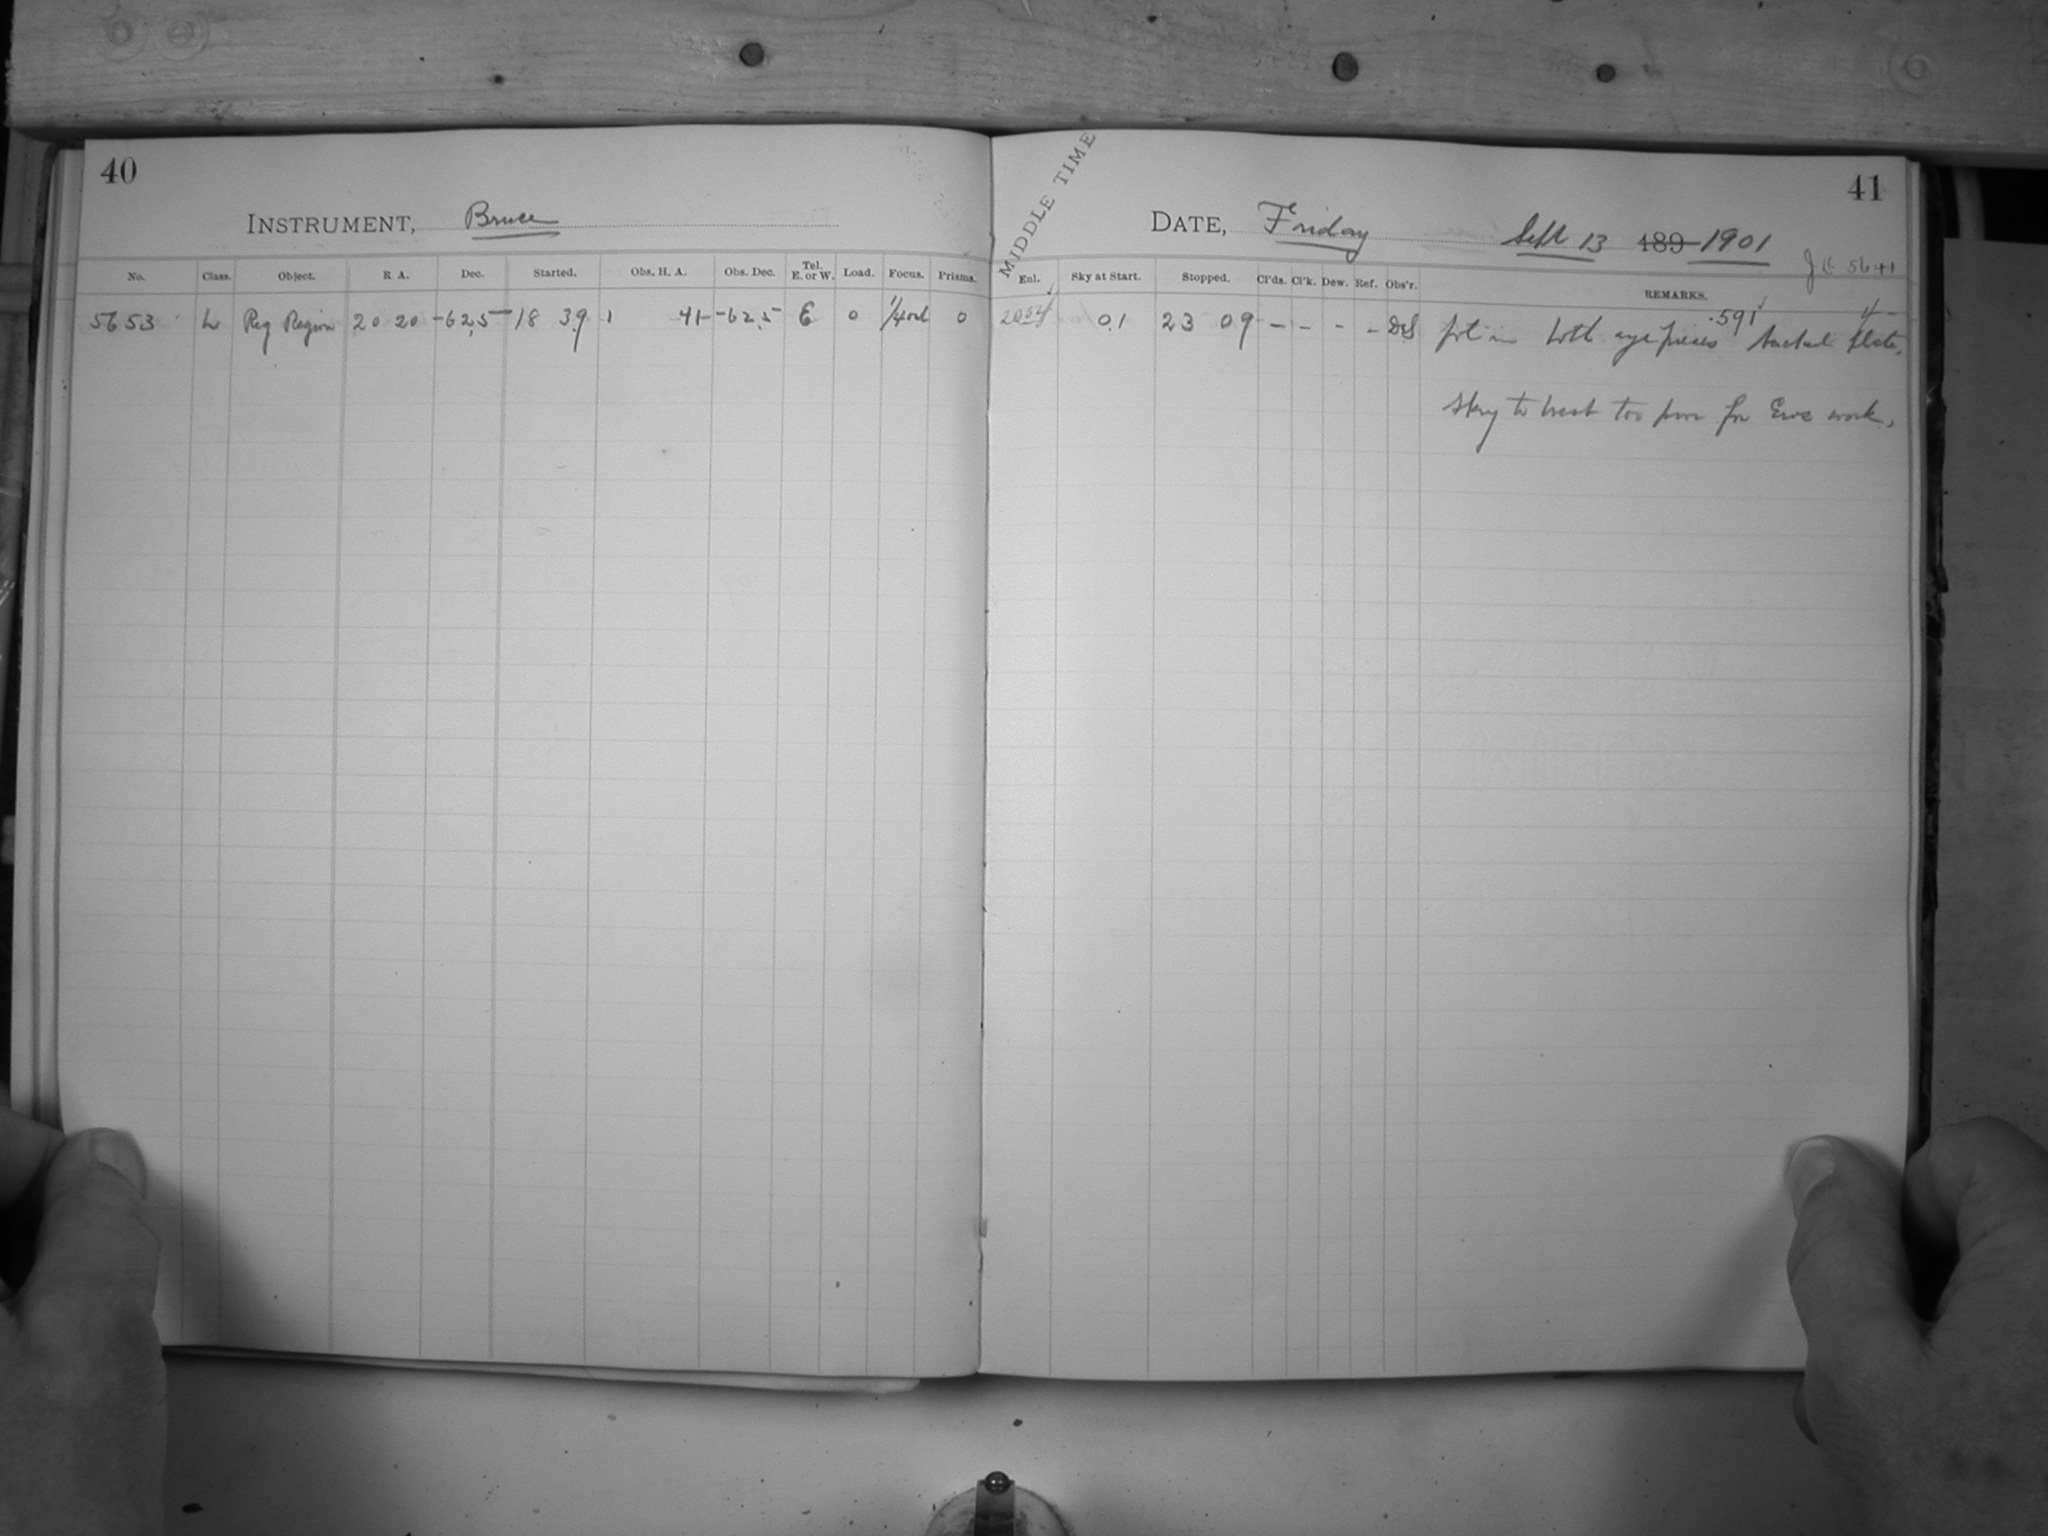 40
INSTRUMENT, Bruce
No. Class. Object. R A. Dec. Started. Obs. H. A. Obs. Dec. Tel. E. or W. Load. Focus. Prisms.
5653 L Reg Region 20 20 -62,5 18 39 1 41 -62,5 E 0 0
MIDDLE TIME
41
DATE, Friday Sept 13 189 1901
5641
Enl. Sky at Start. Stopped. Cl'ds. Cl'k. Dew. Ref. Obs'r. REMARKS.
0.1 23 09 - - - - .591
both eye pieces plate,
Sky to west too poor for work,